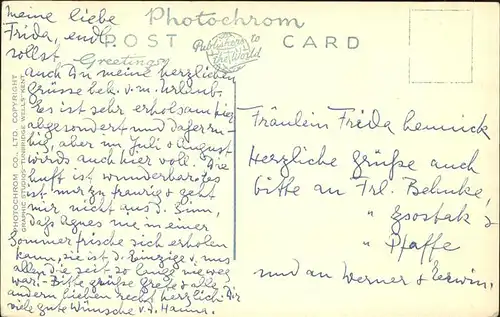 meine liebe
Frida, endl.
sollst
auch Du meine herzlichen
Grüsse bek. v. m. Urlaub.
Es ist sehr erholsam hier,
abgesondert und daher ru-
hig, aber im Juli & August
wirds auch hier voll. Die
Luft ist wunderbar. Es
ist nur zu traurig & geht
mir nicht aus d. Sinn,
daß Agnes nie in einer
Sommerfrische sich erholen
kann, sie ist d. Einzige v. uns
allen die seit so lange nie weg
war. - Bitte grüße Grete & alle
andern lieben recht herzlich. Dir
viele gute Wünsche v. d. Hanna.
Photochrom
POST CARD
Publishers to
the World
Greetings
PHOTOCHROM CO., LTD. COPYRIGHT
GRAPHIC STUDIOS·TUNBRIDGE WELLS·KENT
Fräulein Frida Hennick,
Herzliche Grüße auch
bitte an Frl. Behnke,
" Zsostak &
" Pfaffe
und an Werner & Erwin.